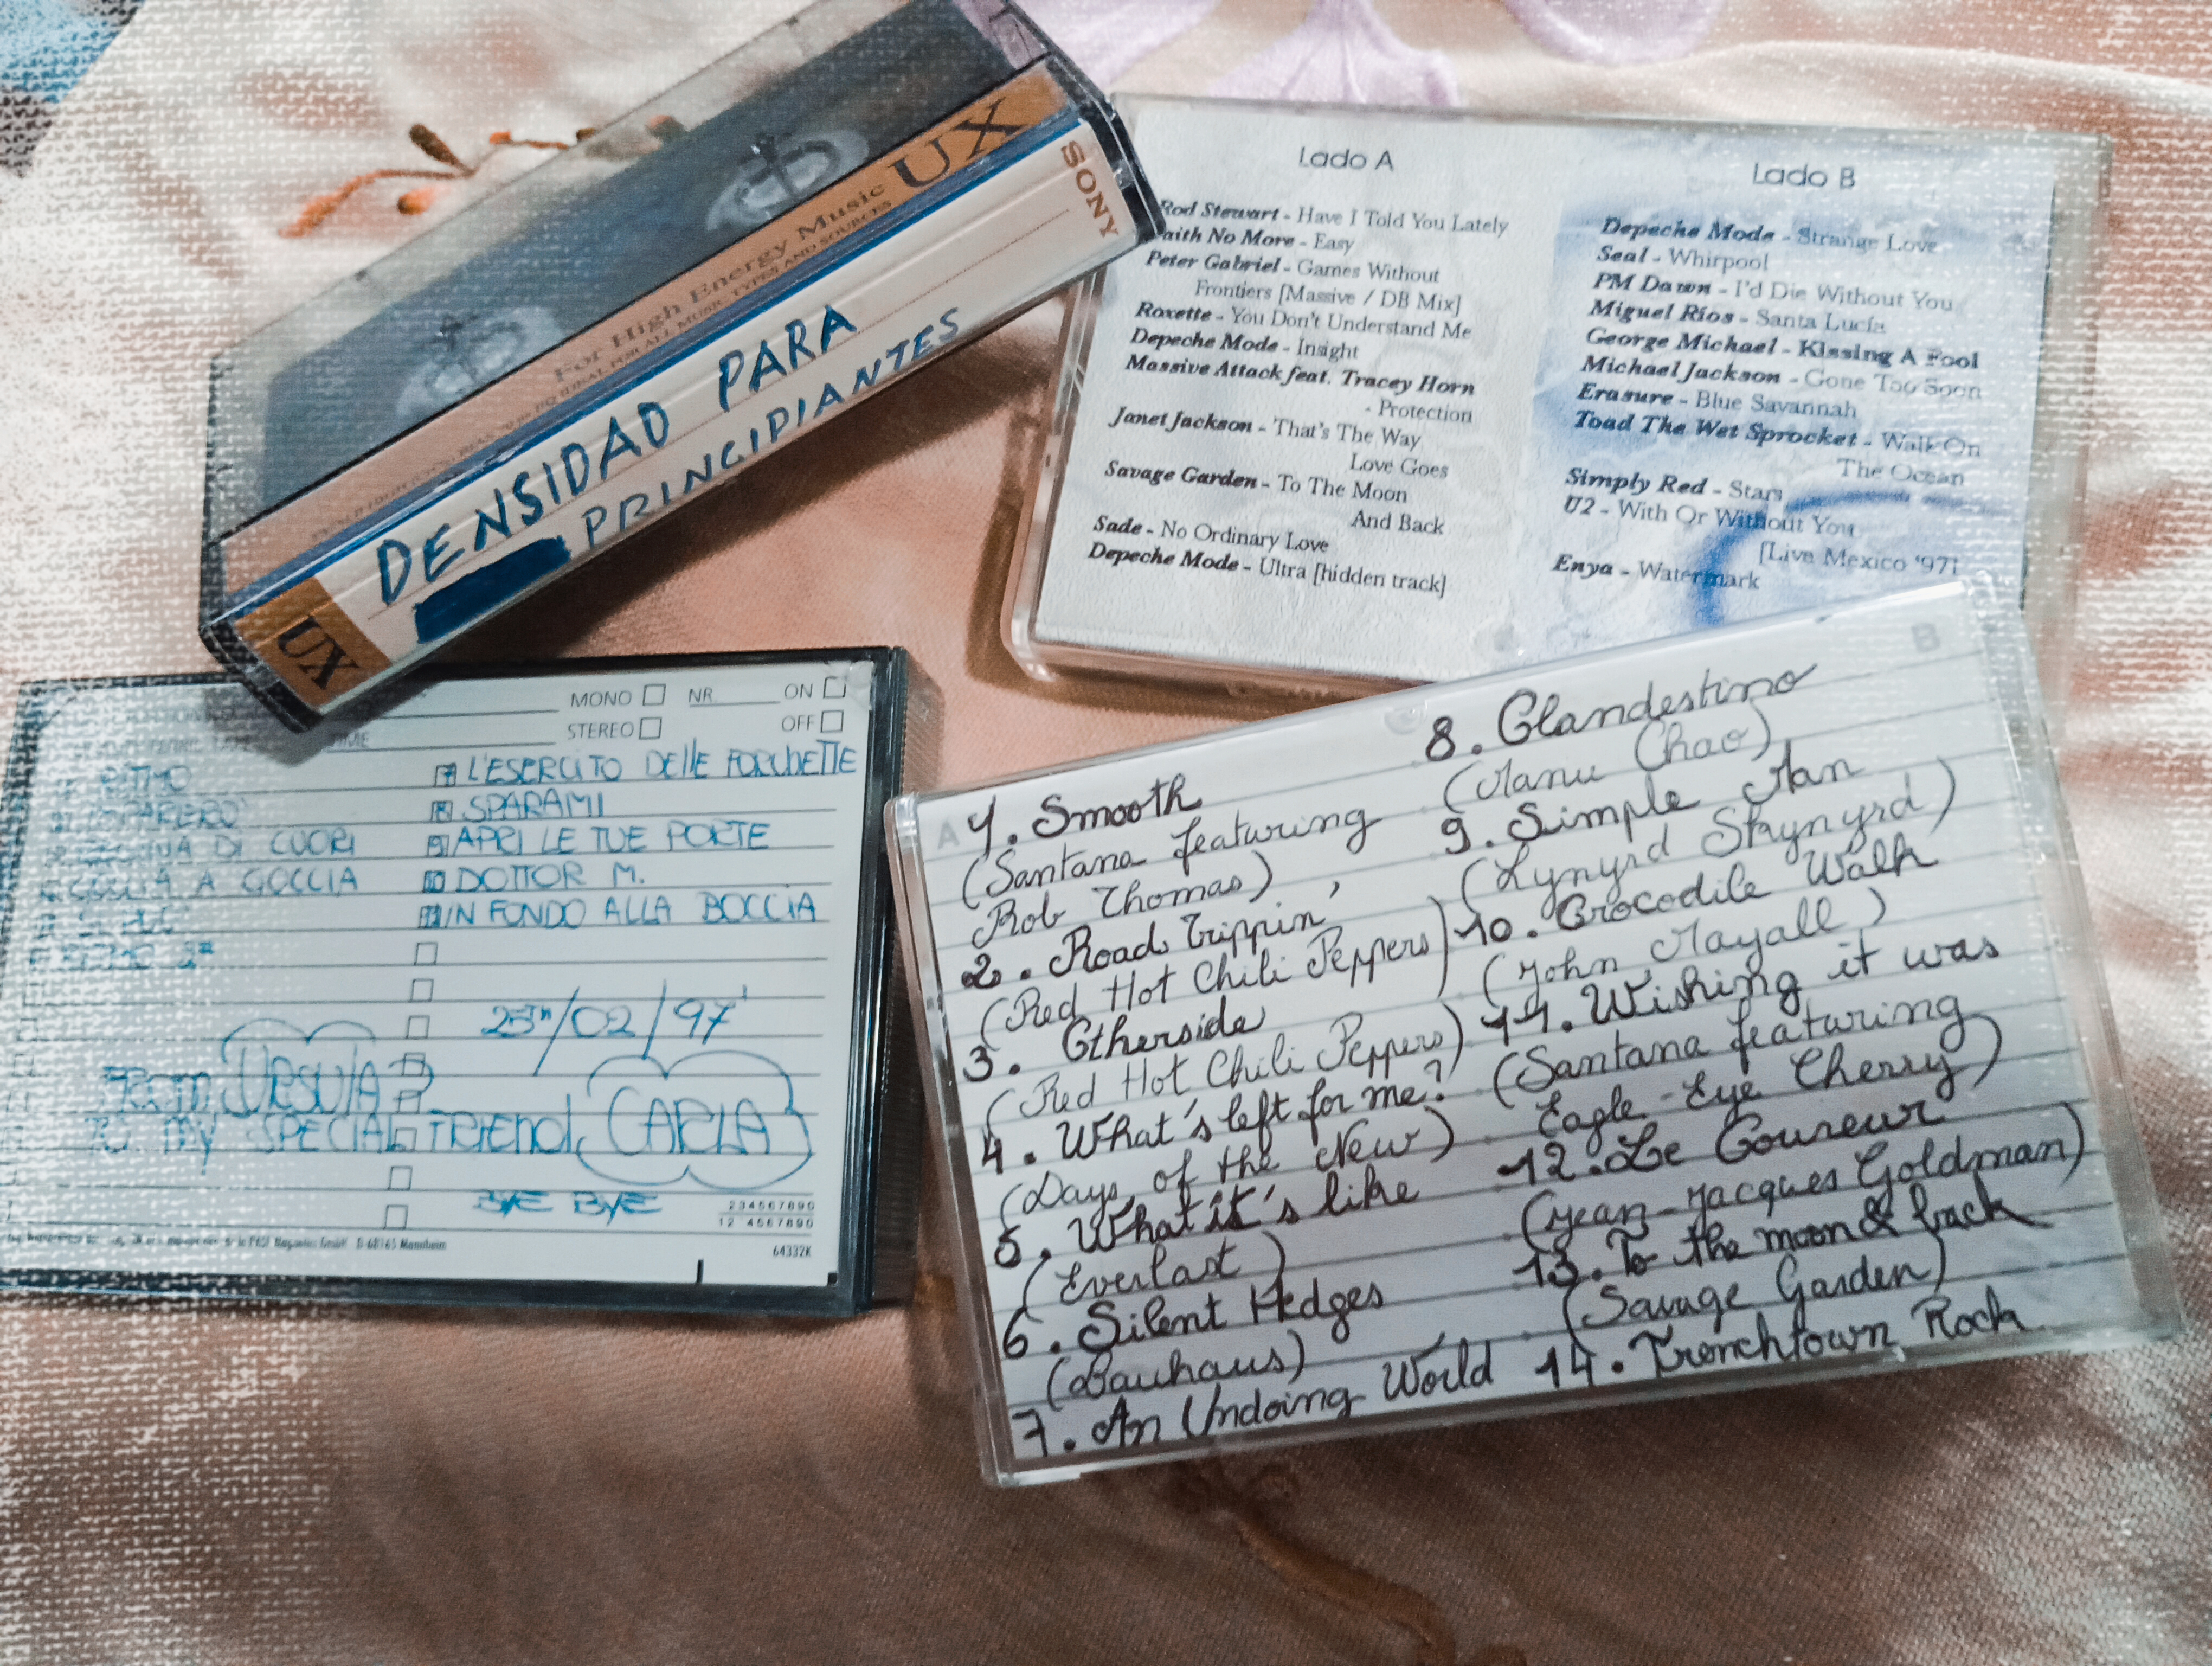 UX
SONY
For High Energy Music
IDEAL FOR ALL MUSIC TYPES AND SOURCES
DENSIDAD PARA
PRINCIPIANTES
UX
Lado A
Rod Stewart - Have I Told You Lately
Faith No More - Easy
Peter Gabriel - Games Without
Frontiers [Massive / DB Mix]
Roxette - You Don't Understand Me
Depeche Mode - Insight
Massive Attack feat. Tracey Horn
- Protection
Janet Jackson - That's The Way
Love Goes
Savage Garden - To The Moon
And Back
Sade - No Ordinary Love
Depeche Mode - Ultra [hidden track]
Lado B
Depeche Mode - Strange Love
Seal - Whirpool
PM Dawn - I'd Die Without You
Miguel Ríos - Santa Lucía
George Michael - Kissing A Fool
Michael Jackson - Gone Too Soon
Erasure - Blue Savannah
Toad The Wet Sprocket - Walk On
The Ocean
Simply Red - Stars
U2 - With Or Without You
[Live Mexico '97]
Enya - Watermark
MONO NR. ON
STEREO OFF
RITMO
REGINA DI CUORI
GOCCIA A GOCCIA
7 L'ESERCITO DELLE FORCHETTE
8 SPARAMI
9 APRI LE TUE PORTE
10 DOTTOR M.
11 IN FONDO ALLA BOCCIA
25TH/02/97'
FROM URSULA
TO MY SPECIAL FRIEND CARLA
BYE BYE
234567890
12 4567890
64332K
A
1. Smooth
(Santana featuring
Rob Thomas)
2. Road Trippin'
(Red Hot Chili Peppers)
3. Otherside
(Red Hot Chili Peppers)
4. What's left for me?
(Days of the New)
5. What it's like
(Everlast)
6. Silent Hedges
(Bauhaus)
7. An Undoing World
B
8. Clandestino
(Manu Chao)
9. Simple Man
(Lynyrd Skynyrd)
10. Crocodile Walk
(John Mayall)
11. Wishing it was
(Santana featuring
Eagle-Eye Cherry)
12. Le Coureur
(Jean-Jacques Goldman)
13. To the moon & back
(Savage Garden)
14. Trenchtown Rock